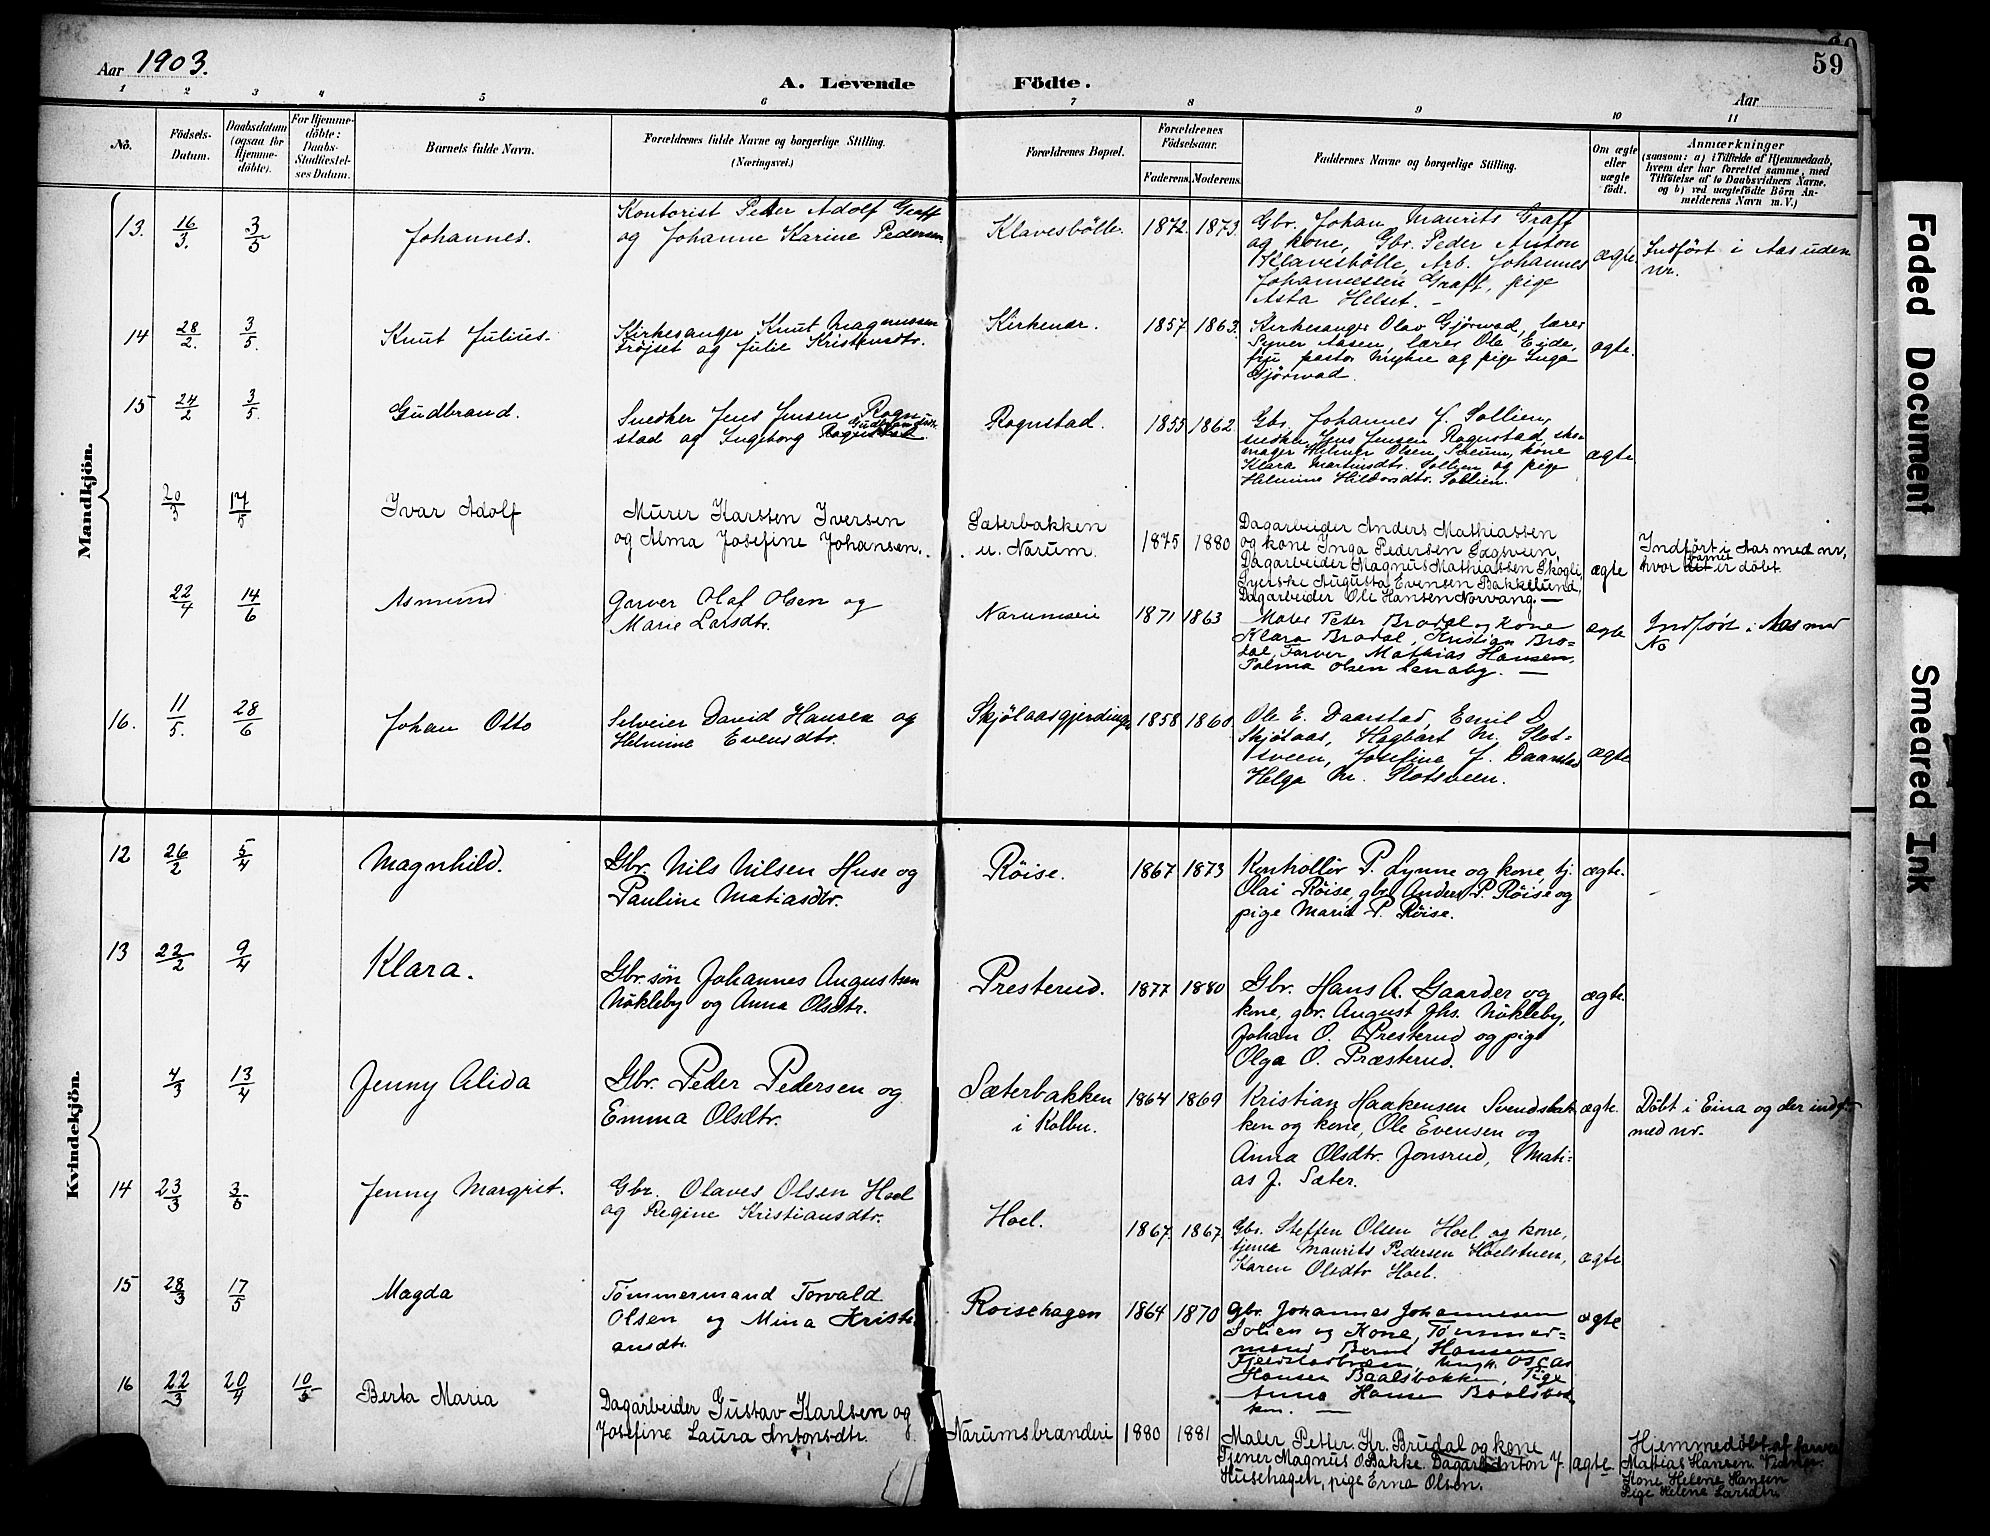 59
Aar 1903.
A. Levende Födte.
Aar
1 2 3 4 5 6 7 8 9 10 11
No.
Födsels-
Datum.
Daabsdatum
(ogsaa for
Hjemme-
döbte).
For Hjemme-
döbte:
Daabs-
Stadfæstel-
ses Datum.
Barnets fulde Navn.
Forældrenes fulde Navne og borgerlige Stilling.
(Næringsvei.)
Forældrenes Bopæl.
Forældrenes
Födselsaar.
Faderens. Moderens.
Faddernes Navne og borgerlige Stilling.
Om ægte
eller
uægte
födt.
Anmærkninger
(saasom: a) i Tilfælde af Hjemmedaab,
hvem der har forrettet samme, med
Tilföielse af to Daabsvidners Navne.
og b) ved uægtefödte Börn An-
melderens Navn m. V.)
Mandkjön.
13. 16/3. 3/5 Johannes.
Kontorist Peder Adolf Graff
og Johanne Karine Pedersen
Klavesbölle. 1872. 1873.
Gbr. Johan Maurits Graff
og kone, Gbr. Peder Anton
Klavesbölle, Arb. Johannes
Johannessen Graff, pige
Asta Helset. –
ægte.
Indfört i Aas uden
nr.
14 28/2. 3/5. Knut Julius.
Kirkesanger Knut Magnussen
Tröjset og Julie Kristensdtr.
Kirkenær. 1857 1863.
Kirkesanger Olav Gjörwad, lærer
Syver Aasen, lærer Ole Eide,
frue pastor Mykre og pige Inga
Gjörwad.
ægte.
15 24/2 3/5. Gudbrand.
Snedker Jens Jensen Rogn-
stad og Ingeborg Gudbrandsen
Rognstad.
Rognstad. 1855 1862.
Gbr. Johannes J. Sollien,
snedker Jens Jensen Rognstad, sko-
mager Helmer Olsen Sveum, kone
Klara Martinsdtr. Sollien og pige
Helmine Hildorsdtr. Sollien.
ægte
20/3 17/5 Ivar Adolf
Murer Karsten Iversen
og Alma Josefine Johansen.
Sæterbakken
u. Narum. 1875 1880
Dagarbeider Anders Mathiassen
og kone Inga Pedersen Sagsveen,
Dagarbeider Magnus Mathiassen Skogli,
Syerske Augusta Evensen Bakkelund,
Dagarbeider Ole Hansen Norvang. –
ægte
Indfört i Aas med nr,
hvor det barnet er döbt.
22/4 14/6 Asmund
Garver Olaf Olsen og
Marie Larsdtr.
Narumseie 1871 1863
Maler Peter Brodal og kone
Klara Brodal, Kristian Bro-
dal, Farver Mathias Hansen,
Palma Olsen Lenaby. –
ægte
Indfört i Aas med
No
16. 11/5. 28/6 Johan Otto
Selveier David Hansen og
Helmine Evensdtr.
Skjölaasgjerdinga 1858 1860
Ole E. Daarstad, Emil D.
Skjölaas, Hagbart M. Slot-
sveen, Josefine J. Daarstad
Helga M. Slotsveen.
ægte
Kvindekjön.
12 26/2 5/4 Magnhild.
Gbr. Nils Nilsen Huse og
Pauline Matiasdtr.
Röise. 1867 1873
Kontrollör P. Lynne og kone, tj.
Olai Röise, gbr. Anders P. Röise og
pige Maria P. Röise.
ægte.
13 22/2 9/4 Klara.
Gbr.sön Johannes Augustsen
Nökleby og Anna Olsdtr.
Presterud. 1877 1880
Gbr. Hans A. Gaarder og
kone, gbr. August Jhs. Nökleby,
Johan O. Presterud og pige
Olga O. Præsterud.
ægte.
4/3 13/4 Jenny Alida
Gbr. Peder Pedersen og
Emma Olsdtr.
Sæterbakken
i Kolbu. 1864 1869
Kristian Haakensen Svendsbak-
ken og kone, Ole Evensen og
Anna Olsdtr. Jonsrud, Mati-
as J. Sæter.
ægte.
Döbt i Eina og der indf.
med nr.
14 23/3 3/5 Jenny Margrit.
Gbr. Olaves Olsen Hoel
og Regine Kristiansdtr.
Hoel. 1867 1867
Gbr. Steffen Olsen Hoel og kone,
tjener Maurits Pedersen Hoelstuen,
Karen Olsdtr Hoel.
ægte
15 28/3 17/5 Magda
Tømmermand Torvald
Olsen og Mina Kristi-
ansdtr.
Roisehagen 1864 1870
Gbr. Johannes Johannesen
Solien og Kone, Tømmer-
mand Bernt Hansen
Fjeldstadbræn, Ungk. Oscar
Hansen Baalsbakken, Pige
Anna Hansen Baalsbak-
ken. –
ægte
16 22/3 20/4 10/5 Berta Maria
Dagarbeider Gustav Karlsen og
Josefine Laura Antonsdtr.
Narumsbrænderi 1880 1881
Maler Petter Kr. Brudal og kone
Tjener Magnus O. Bakke. Dagarb. Anton J.
Husehagen, pige Erna Olsen.
ægte
Hjemmedöbt af farver
Matias Hansen. Vidner
Kone Helene Hansen
Pige Helene Larsdtr.
Faded Document
Smeared Ink